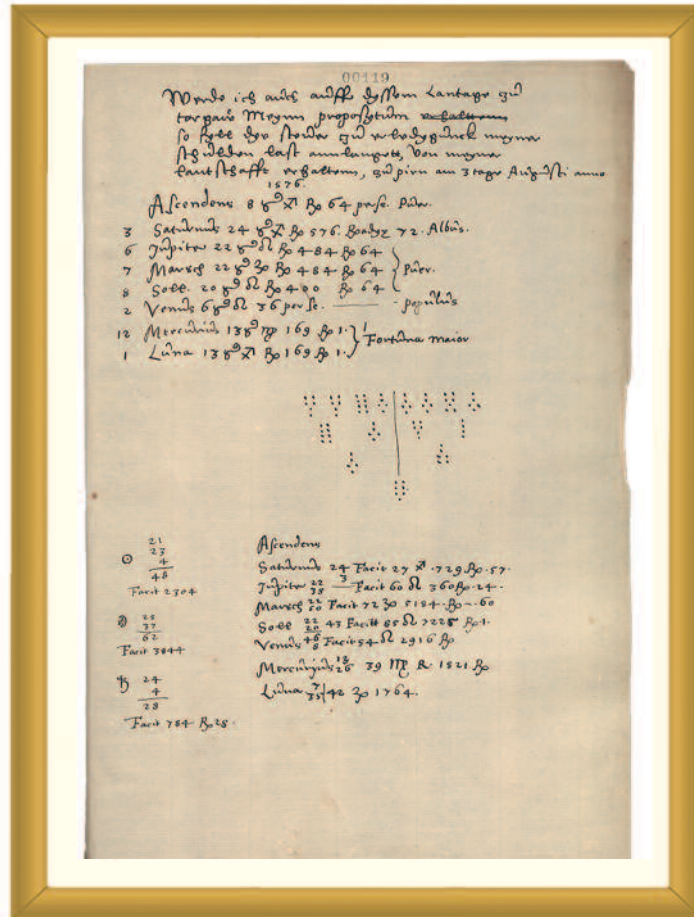 00119
Werde ich auch auffs dyssem Lantage zu
torgaw Meynn proposytium erhalttenn
so soll dye stewer zu erledygunck meyner
schulden last annlangett, Von meyner
lantschafft erhaltenn, zu pirn am 3 tage Augusti anno
1576.
Ascendens 8 64 per se. Puer.
3 Saturnus 24 576. 72. Albus.
6 Jupiter 22 484 64
7 Marsch 22 484 64 Puer.
8 Soll. 20 400 64
2 Venus 6 36 per se. populus
12 Mercurius 13 ♍ 169 1.
Fortuna maior
1 Luna 13 169 1.
21
23
4
48
Facit 2304
25
37
62
Facit 3844
24
4
28
Facit 784 28
Ascendens
Saturnus 24 Facit 27 ♐ 729 57.
Jupiter 22 Facit 60 ♌ 360 24.
Marsch 22 50 Facit 72 5184 60
Soll 22 20 43 Facitt 85 ♌ 7225 1.
Venus 46 8 Facit 54 ♌ 2916
Mercuryus 13 26 39 ♍ 1521
Luna 7 35 42 1764.